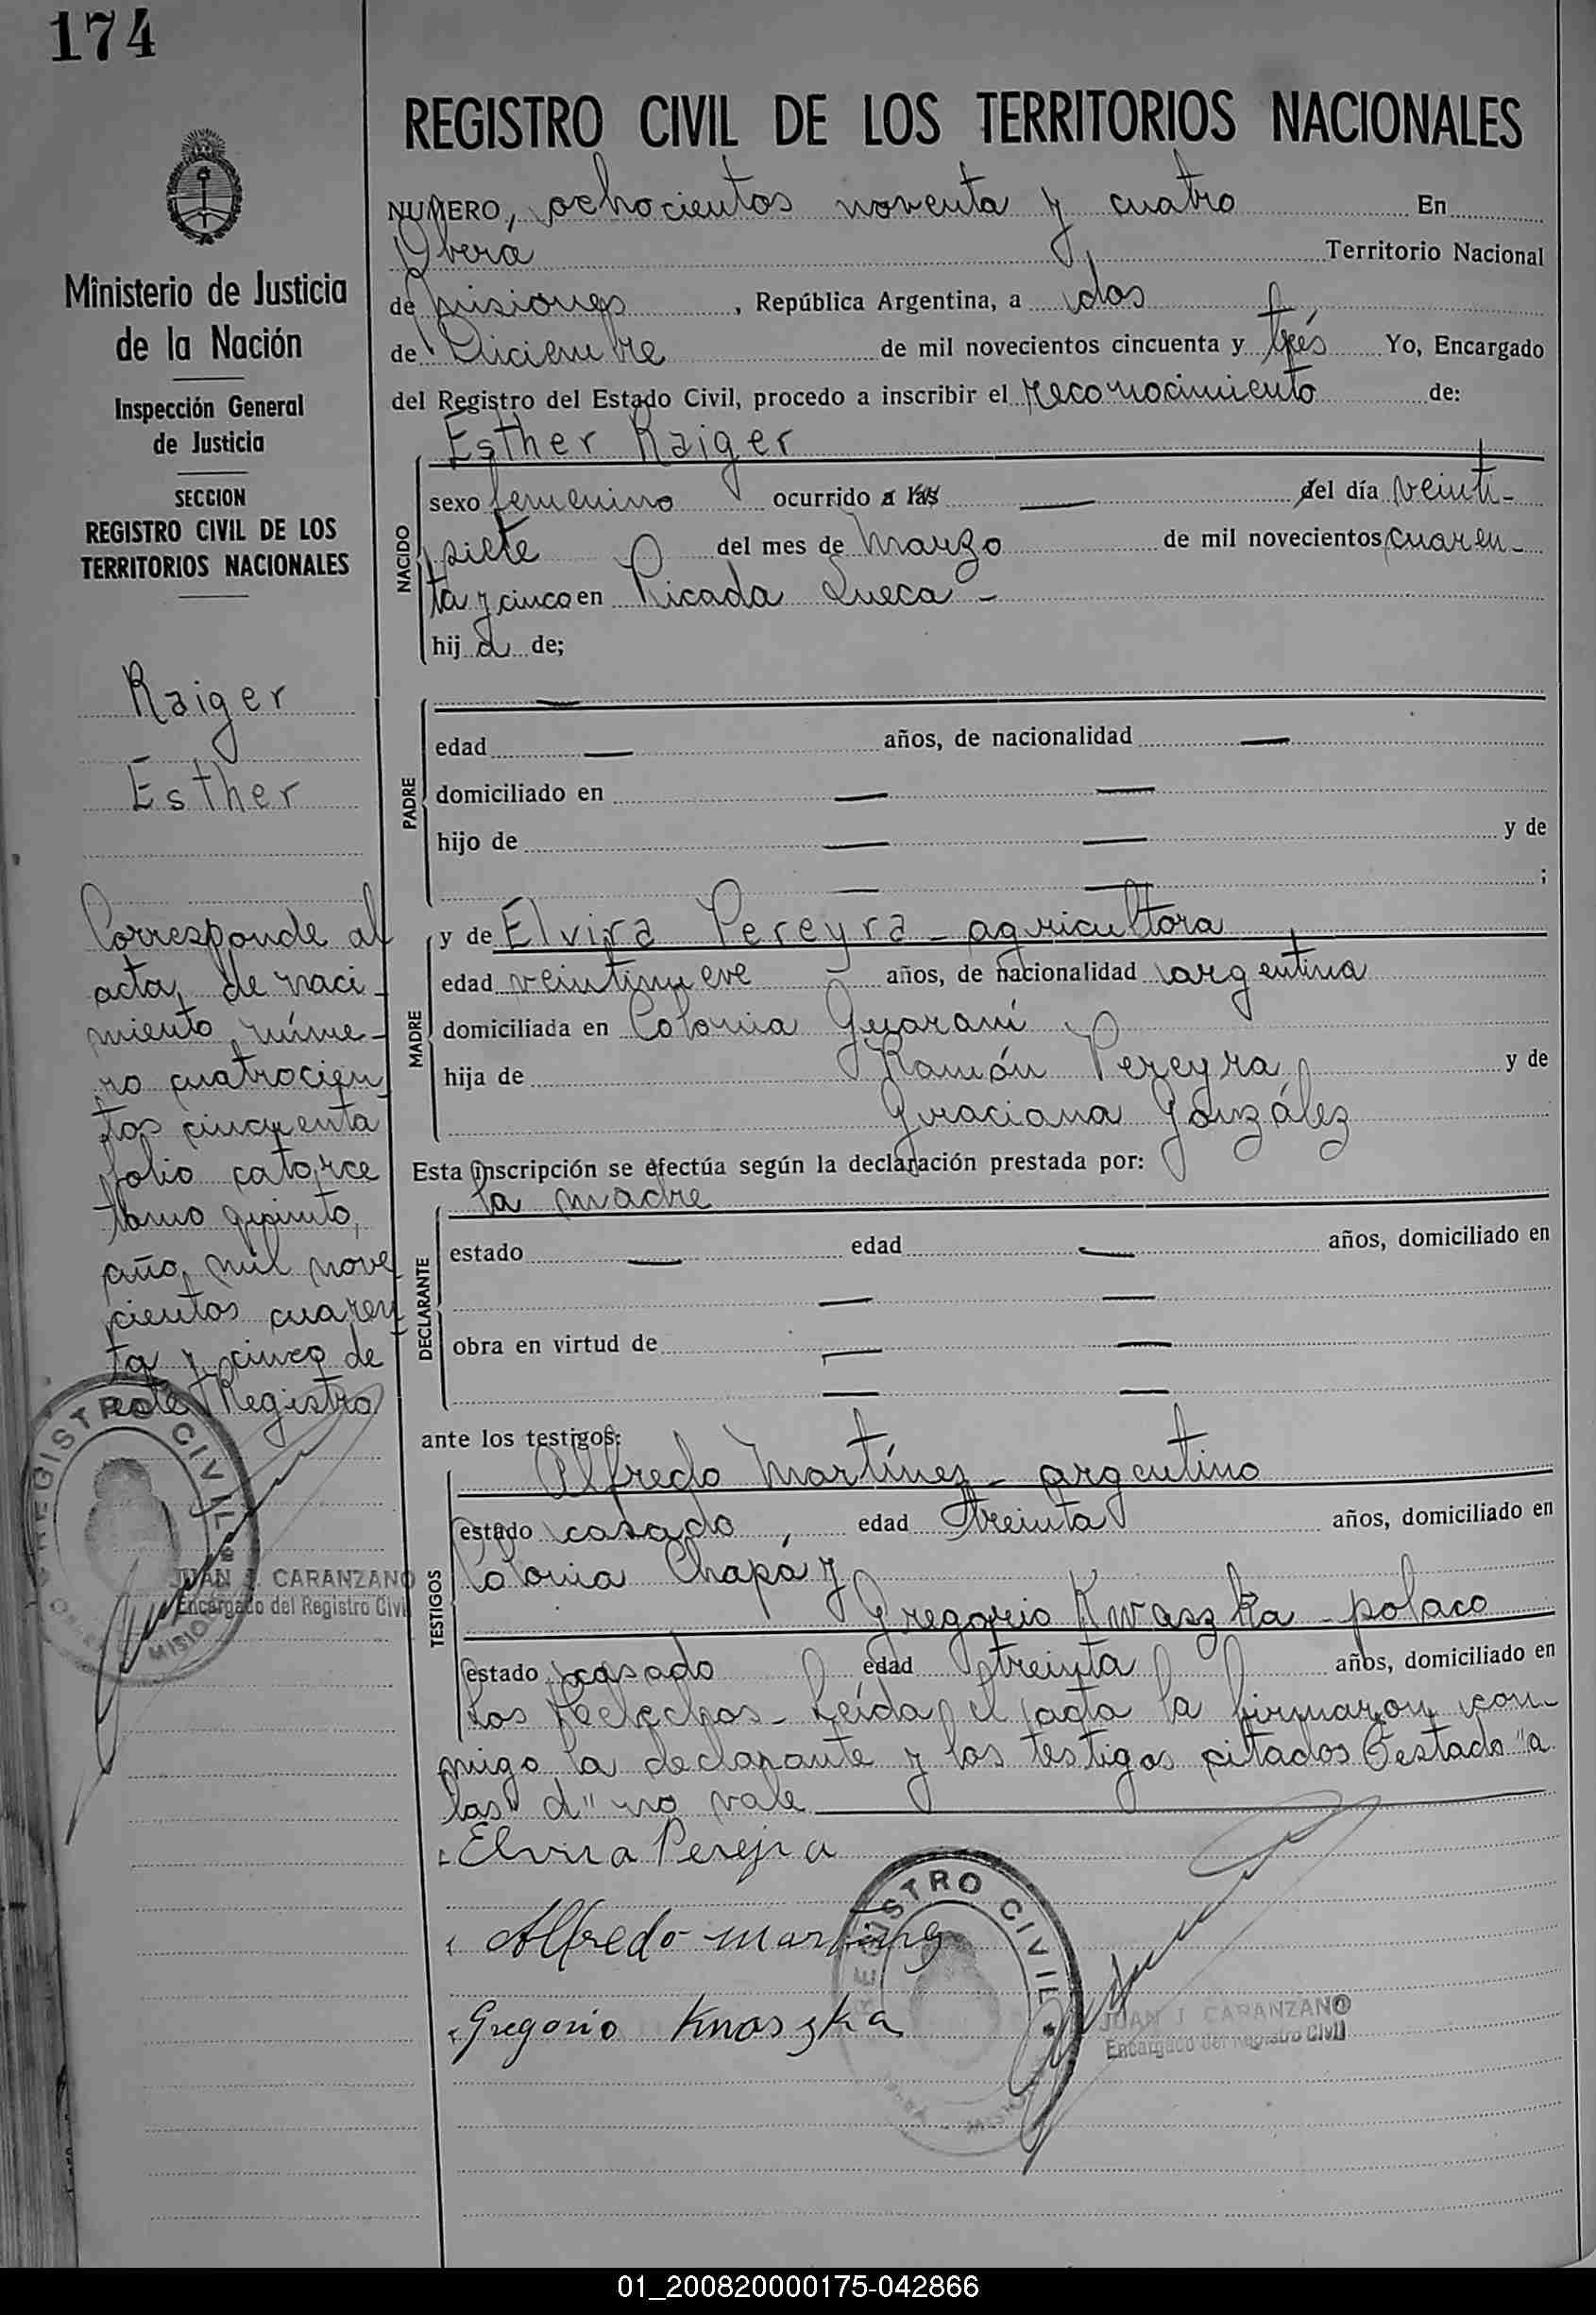 174
REGISTRO CIVIL DE LOS TERRITORIOS NACIONALES
Ministerio de Justicia
de la Nación
Inspección General
de Justicia
SECCION
REGISTRO CIVIL DE LOS
TERRITORIOS NACIONALES
Raiger
Esther
Corresponde al
acta, de naci-
miento núme-
ro cuatrocien
tos cincuenta
folio catorce
tomo quinto,
año, mil nove
cientos cuaren
ta y cinco de
este Registro
REGISTRO CIVIL
MISIONES
JUAN J. CARANZANO
Encargado del Registro Civil
NUMERO, ochocientos noventa y cuatro En
Oberá Territorio Nacional
de Misiones, República Argentina, a dos
de Diciembre de mil novecientos cincuenta y trés Yo, Encargado
del Registro del Estado Civil, procedo a inscribir el reconocimiento de:
Esther Raiger
NACIDO
sexo femenino ocurrido a las — del día veinti-
siete del mes de Marzo de mil novecientos cuaren-
ta y cinco en Picada Sueca -
hij a de;
PADRE
—
edad — años, de nacionalidad —
domiciliado en — —
hijo de — — y de
— — ;
MADRE
y de Elvira Pereyra - agricultora
edad veintinueve años, de nacionalidad argentina
domiciliada en Colonia Guaraní
hija de Ramón Pereyra y de
Graciana González
Esta inscripción se efectúa según la declaración prestada por:
la madre
DECLARANTE
estado — edad — años, domiciliado en
— —
obra en virtud de — —
— —
ante los testigos:
TESTIGOS
Alfredo Martínez - argentino
estado casado, edad treinta años, domiciliado en
Colonia Chapá y
Gregorio Kwaszka - polaco
estado casado edad treinta años, domiciliado en
Los Helechos - Leída el acta la firmaron con-
migo la declarante y los testigos citados Testado "a
las" d" no vale
Elvira Perejra
Alfredo Martinez
Gregorio Knaszka
REGISTRO CIVIL
JUAN J. CARANZANO
Encargado del Registro Civil
01_200820000175-042866